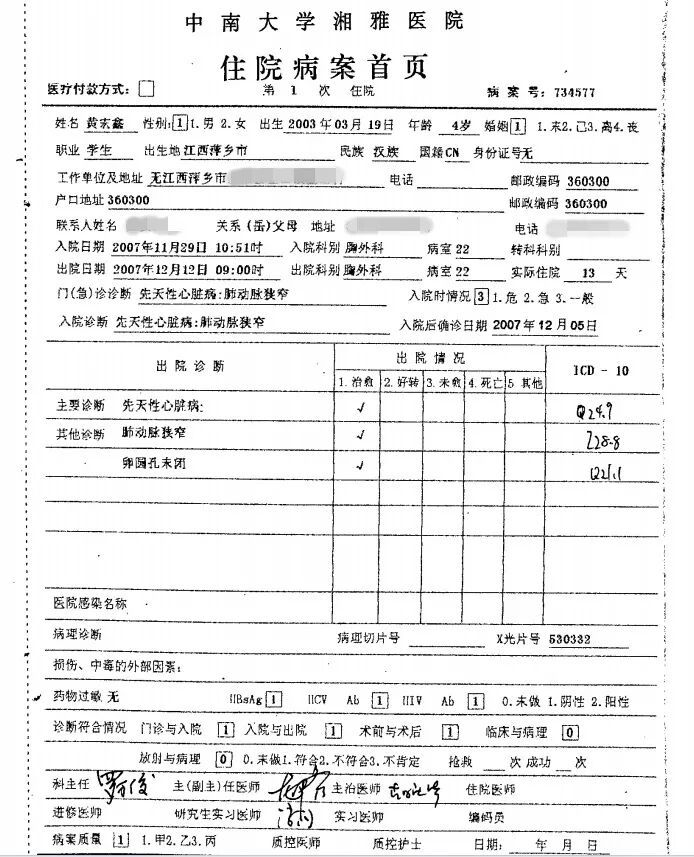 中南大学湘雅医院
住院病案首页
医疗付款方式：□ 第 1 次 住院 病案号：734577
姓名 黄宏鑫 性别：1 1.男 2.女 出生 2003年03月19日 年龄 4岁 婚姻 1 1.未2.已3.离4.丧
职业 学生 出生地 江西萍乡市 民族 汉族 国籍CN 身份证号无
工作单位及地址 无江西萍乡市 电话 邮政编码 360300
户口地址360300 邮政编码 360300
联系人姓名 关系（岳）父母 地址 电话
入院日期 2007年11月29日 10:51时 入院科别 胸外科 病室 22 转科科别
出院日期 2007年12月12日 09:00时 出院科别 胸外科 病室 22 实际住院 13 天
门（急）诊诊断 先天性心脏病:肺动脉狭窄 入院时情况 3 1.危 2.急 3.一般
入院诊断 先天性心脏病:肺动脉狭窄 入院后确诊日期 2007年12月05日
出院诊断 出院情况 ICD - 10
1.治愈 2.好转 3.未愈 4.死亡 5.其他
主要诊断 先天性心脏病: ✓ Q24.9
其他诊断 肺动脉狭窄 ✓
卵圆孔未闭 ✓ Q21.1
医院感染名称
病理诊断 病理切片号 X光片号 530332
损伤、中毒的外部因素：
药物过敏 无 HBsAg 1 HCV Ab 1 HIV Ab 1 0.未做 1.阴性 2.阳性
诊断符合情况 门诊与入院 1 入院与出院 1 术前与术后 1 临床与病理 0
放射与病理 0 0.未做1.符合2.不符合3.不肯定 抢救 次 成功 次
科主任 主（副主）任医师 主治医师 住院医师
进修医师 研究生实习医师 实习医师 编码员
病案质量 1 1.甲2.乙3.丙 质控医师 质控护士 日期： 年 月 日